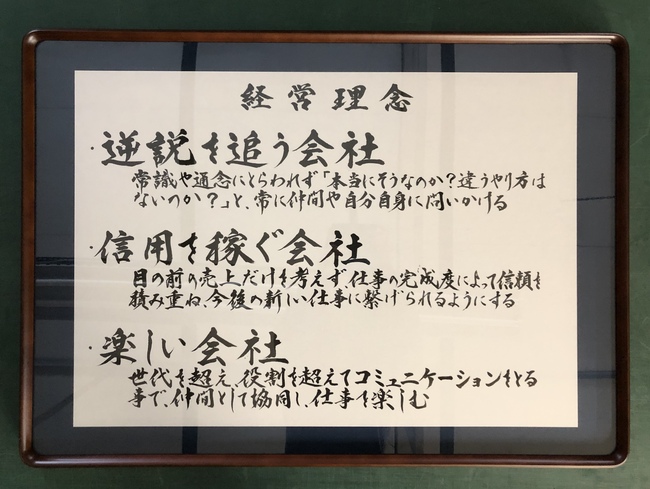 経営理念
・逆説を追う会社
常識や通念にとらわれず「本当にそうなのか?違うやり方は
ないのか?」と、常に仲間や自分自身に問いかける
・信用を稼ぐ会社
目の前の売上だけを考えず、仕事の完成度によって信頼を
積み重ね、今後の新しい仕事に繋げられるようにする
・楽しい会社
世代を超え、役割を超えてコミュニケーションをとる
事で、仲間として協同し、仕事を楽しむ